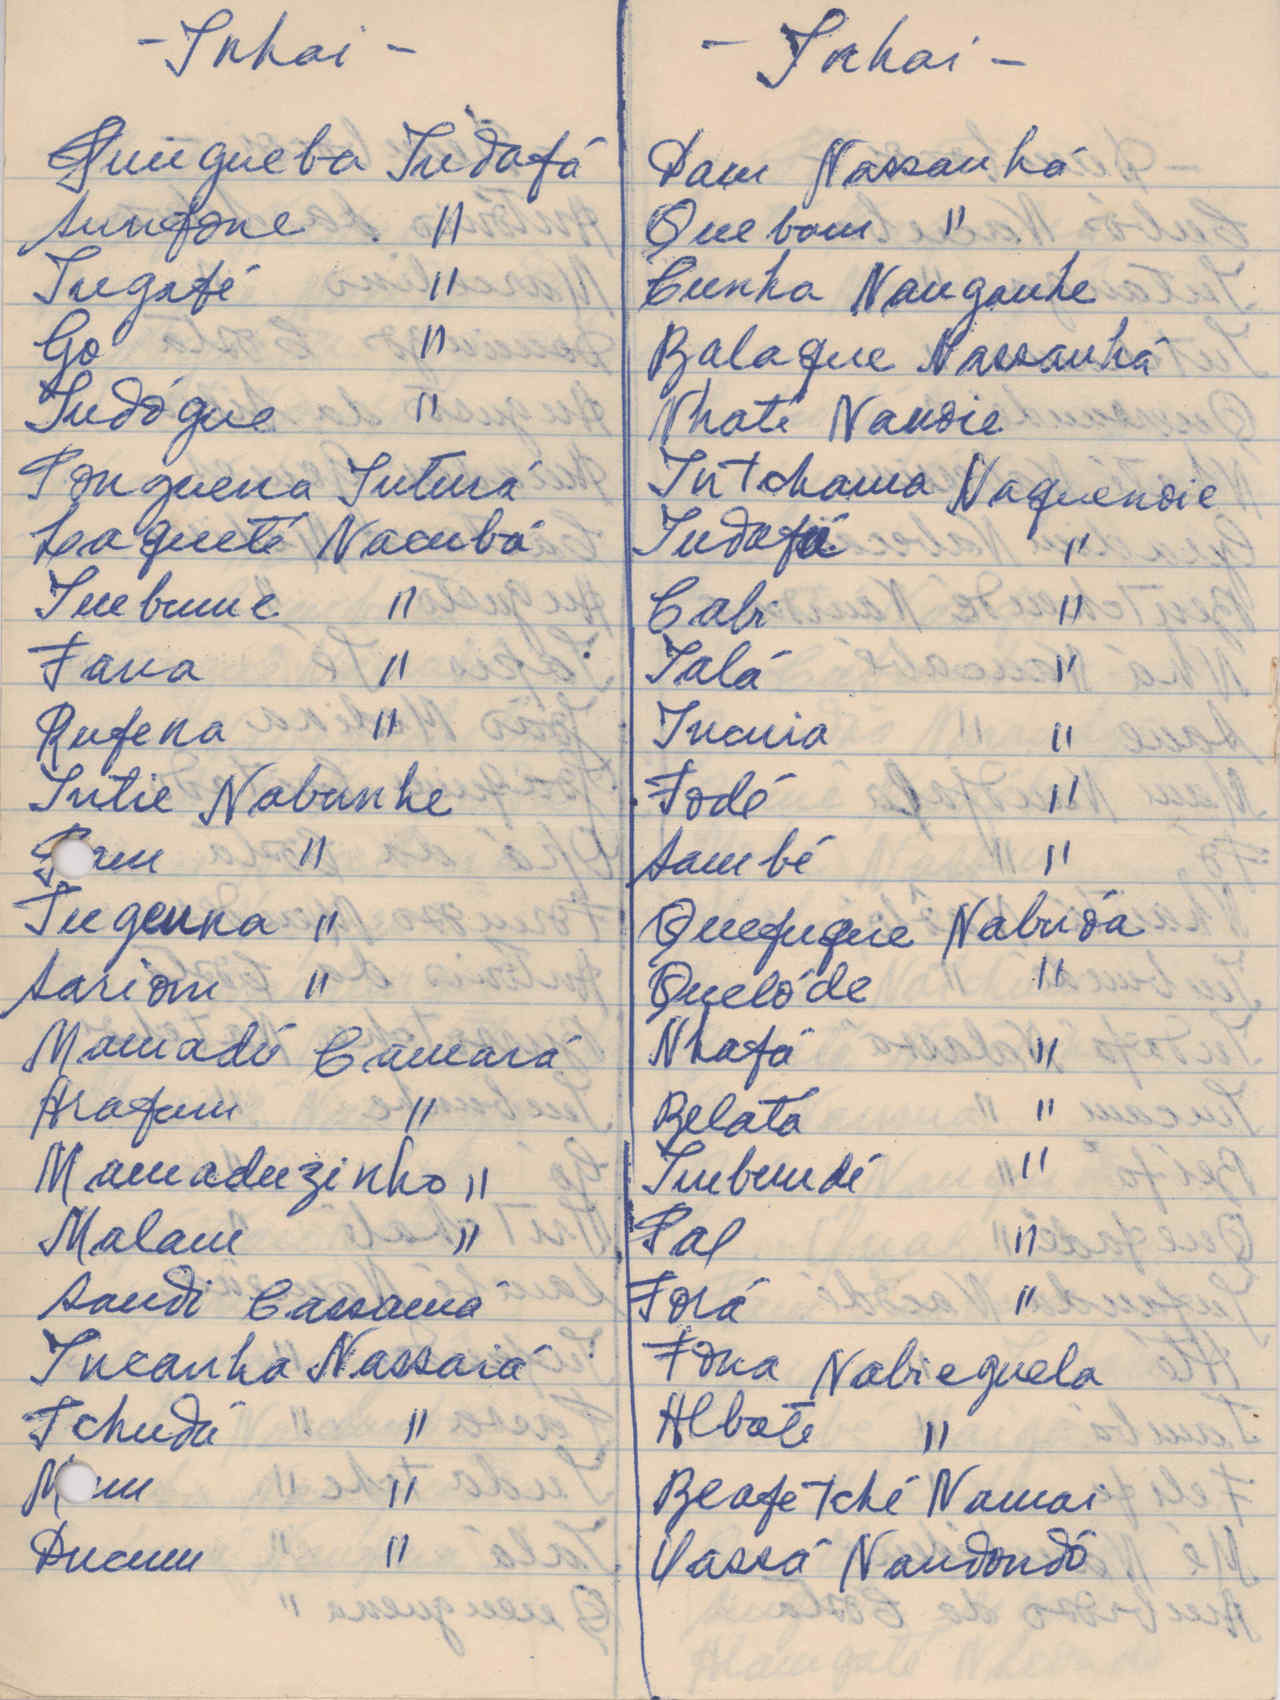 - Inhai -
Quingueba Indafá
Aunfone "
Ingafé "
Go "
Indógue "
Ponguena Inturá
Laqueté Nacubá
Imbume "
Fana "
Rufena "
Intie Nabunhe
am "
Ingenna "
Sariom "
Mamadú Camará
Arafam "
Mamaduzinho "
Malam "
Sandi Cassama
Incanha Nassaiá
Tchudá "
M m "
Ducum "
- Inhai -
Dam Nassanhá
Quebam "
Cunha Nanganhe
Balaque Nassanhá
Nhaté Nandie
Intchama Naquendie
Indafá "
Cabi "
Ialá "
Incuia "
Fodé "
Sambé "
Quefuque Nabidá
Quelóde "
Nhafá "
Belatá "
Imbundé "
Pal "
Forá "
Fona Nabieguela
Albate "
Beafetché Namai
Vassá Nandondó